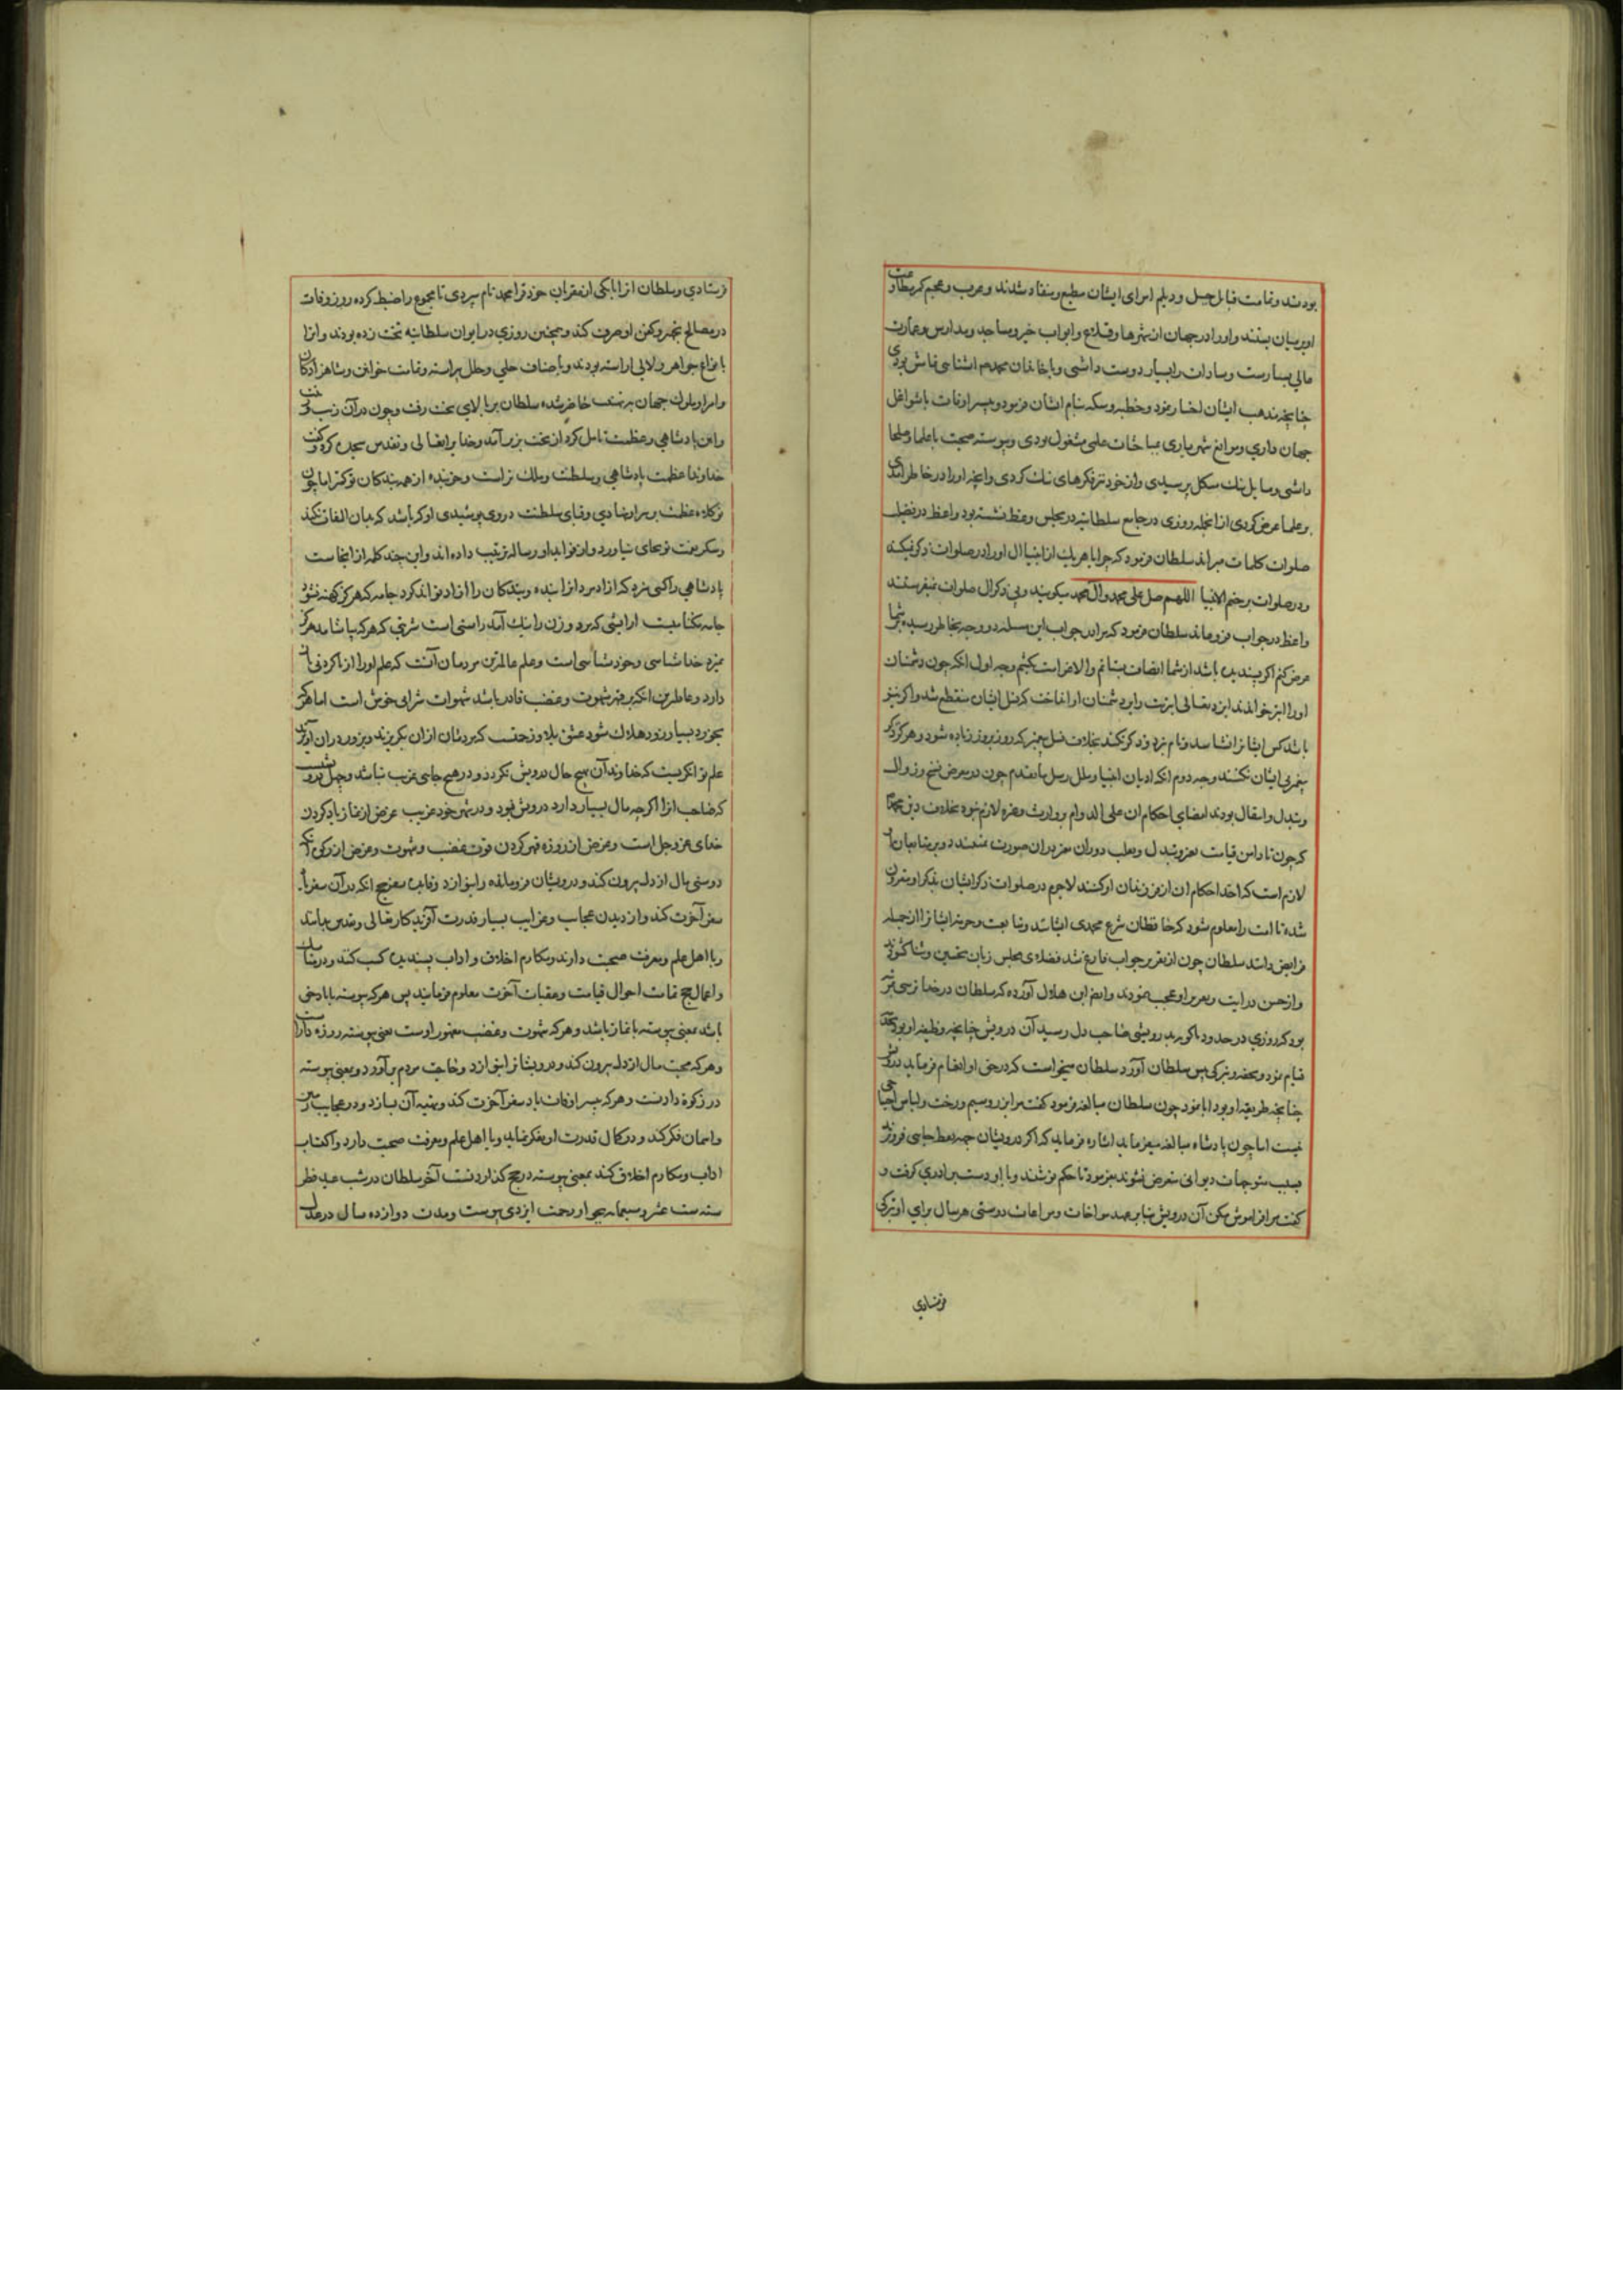 بودند و تمامت قبایل جیل و دیلم امرای ایشان مطیع و منقاد شدند و عرب و عجم کمر مطاوعت
او بر میان بستند و او را در جهان از شهرها و قلاع و ابواب خیر و مساجد و مدارس و عمارت
عالی بسیارست و سادات را بسیار دوست داشتی و با خاندان محمدم اشنایی فاش بودی
چنانچه مذهب ایشان اختیار نمود و خطبه و سکه بنام ایشان فرمود و بیشتر اوقات با شواغل
جهان داری و موانع شهریاری بمباحثات علمی مشغول بودی و پیوسته صحبت با علما و صلحا
داشتی و مسایل نیک مشکل پرسیدی و از خود نیز فکرهای نیک کردی و انچه او را در خاطر امدی
بر علما عرض کردی از انجمله روزی در جامع سلطانیه در مجلس وعظ نشسته بود واعظ در فضیلت
صلوات کلمات میراند سلطان فرمود که چرا با هر یک از انبیا ال او را در صلوات ذکر نمیکنند
و در صلوات بر ختم الانبیا اللهم صل علی محمد وآل محمد میگویند و بی ذکر ال صلوات نمیفرستند
واعظ در جواب فرو ماند سلطان فرمود که مرا در جواب این مسئله دو وجه بخاطر رسیده بر شما
عرض کنم اگر پسندیده باشد از شما انصاف بستانم والا غرامت بکشم وجه اول انکه چون دشمنان
او را ابتر خواندند ایزد تعالی ابتریت را برد دشمنان او انداخت که نسل ایشان منقطع شد و اگر نیز
باشد کس ایشانرا نشناسد و نام نبرد و ذکر نکند بخلاف نسل پیغمبر که روز بروز زیاده شود و هرگز ذکر
پیغمبر بی ایشان نکنند وجه دوم انکه ادیان انبیا و ملل رسل ما تقدم چون در معرض نسخ و زوال
و تبدل و انتقال بودند امضای احکام ان علی الدوام بر وارث و عتره لازم نبود بخلاف دین محمدی
که چون تا دامن قیامت
لازم است که اخذ احکام ان از فرزندان او کنند لاجرم در صلوات ذکر ایشان بذکر او مقرون
شده تا امت را معلوم شود که حافظان شرع محمدی ایشانند و متابعت و حرمت ایشانرا از جمله
فرایض دانند سلطان چون از تقریر جواب فارغ شد فضلای مجلس زبان تحسین و ثنا گشودند
و از حسن درایت و تقریر او تعجب نمودند و ابن هلال آورده که سلطان در خدا ترسی
بود که روزی در حدود باکو بدرویشی صاحب دل رسید آن درویش چنانچه وظیفه او بود
قیام نمود و محضر تبرکی پیش سلطان آورد سلطان میخواست که در حق او انعام فرماید درویش
چنانچه طریقه او بود ابا نمود چون سلطان مبالغه فرمود گفت مرا بزر و سیم و رخت و لباس احتیاج
نیست اما چون پادشاه مبالغه میفرماید اشاره فرماید که اگر درویشان جهه ما بجایی فرود
بسبب متوجهات دیوانی متعرض نشوند بفرمود تا حکم نوشتند و با او دست برادری گرفت و
گفت مرا فراموش مکن آن درویش بنا بر عهد مواخات و مراعات دوستی هر سال برای او تبرکی
فرستادی
فرستادی و سلطان انرا بیکی از مقربان خود قرا محمد نام سپردی تا مجموع را ضبط کرده روز وفات
در مصالح تجهیز و کفن او صرف کند و همچنین روزی در ایوان سلطانیه تخت زده بودند و انرا
بانواع جواهر و لالی اراسته بودند و باصناف حلی و حلل پیراسته و تمامت خواتین و شاهزادگان
و امرا و ملوک جهان حاضر شده سلطان بر بالای تخت رفت و چون در آن زیب
و این پادشاهی و عظمت تامل کرد از تخت بزیر آمد و خدا یرا تعالی و تقدس سجده کرد و گفت
خداوندا عظمت پادشاهی و سلطنت و ملک تراست و خربنده از همه بندگان تو کمتر اما چون
تو کلاه عظمت بر سر او نهادی و قبای سلطنت در وی پوشیدی او که باشد که بدان التفات نکند
و شکر نعمت تو بجای نیاورد و از فواید او رساله ترتیب داده اند و این چند کلمه از انجاست
پادشاهی را کسی سزد که ازاد مرد انرا بنده و بندگان را ازاد تواند کرد جامه که هرگز کهنه نشود
جامه نیکنامیست ارایشی که مرد و زن را نیک آید راستی است شربتی که هر که بیاشامد هرگز
نمیرد خدا شناسی و خود شناسی است و عالم ترین مردمان آنست که علم او را از ناکردنی باز
دارد و عاقل ترین انکه بر قهر شهوت و غضب قادر باشد شهوات شرابی خوش است اما هر که
بخورد بسیار زود هلاک شود عشق بلا و زحمت که مردمان ازان بگریزند و بزور در ان آویزند
علم توانگریست که خداوند آن هیچ حال درویش نگردد و در هیچ جای غریب نباشد و جهل
که صاحب انرا اگر چه مال بسیار دارد درویش بود و در شهر خود غریب غرض از نماز یاد کردن
خدای عز و جل است و غرض از روزه قهر کردن قوت غضب و شهوت و غرض از زکوة انکه
دوستی مال از دل بیرون کند و درویشان فرو مانده را بنوازد و غرض حج انکه در آن سفر یاد
سفر آخرت کند و از دیدن عجایب و غرایب بسیار قدرت آفریدگار تعالی و تقدس بداند
و با اهل علم و معرفت صحبت دارند و مکارم اخلاق و اداب پسندیده کسب کند و در مناسک
و اعمال حج تمامت احوال قیامت و عقبات آخرت معلوم فرمایند پس هر که پیوسته با یاد حق
باشد بمعنی پیوسته با نماز باشد و هر که شهوت و غضب مقهور اوست بمعنی پیوسته روزه دارد
و هر که محبت مال از دل بیرون کند و درویشانرا بنوازد و حاجت مردم برآورد بمعنی پیوسته
در زکوة دادنست و هر که بیشتر اوقات یاد سفر آخرت کند و تهیه آن سازد و در عجایب زمین
و اسمان فکر کند و در کمال قدرت او تفکر نماید و با اهل علم و معرفت صحبت دارد و اکتساب
اداب و مکارم اخلاق کند بمعنی پیوسته در حج گذاردنست آخر سلطان در شب عید فطر
سنه ست عشر و سبعمایه بجوار رحمت ایزدی پیوست و مدت دوازده سال در عدل